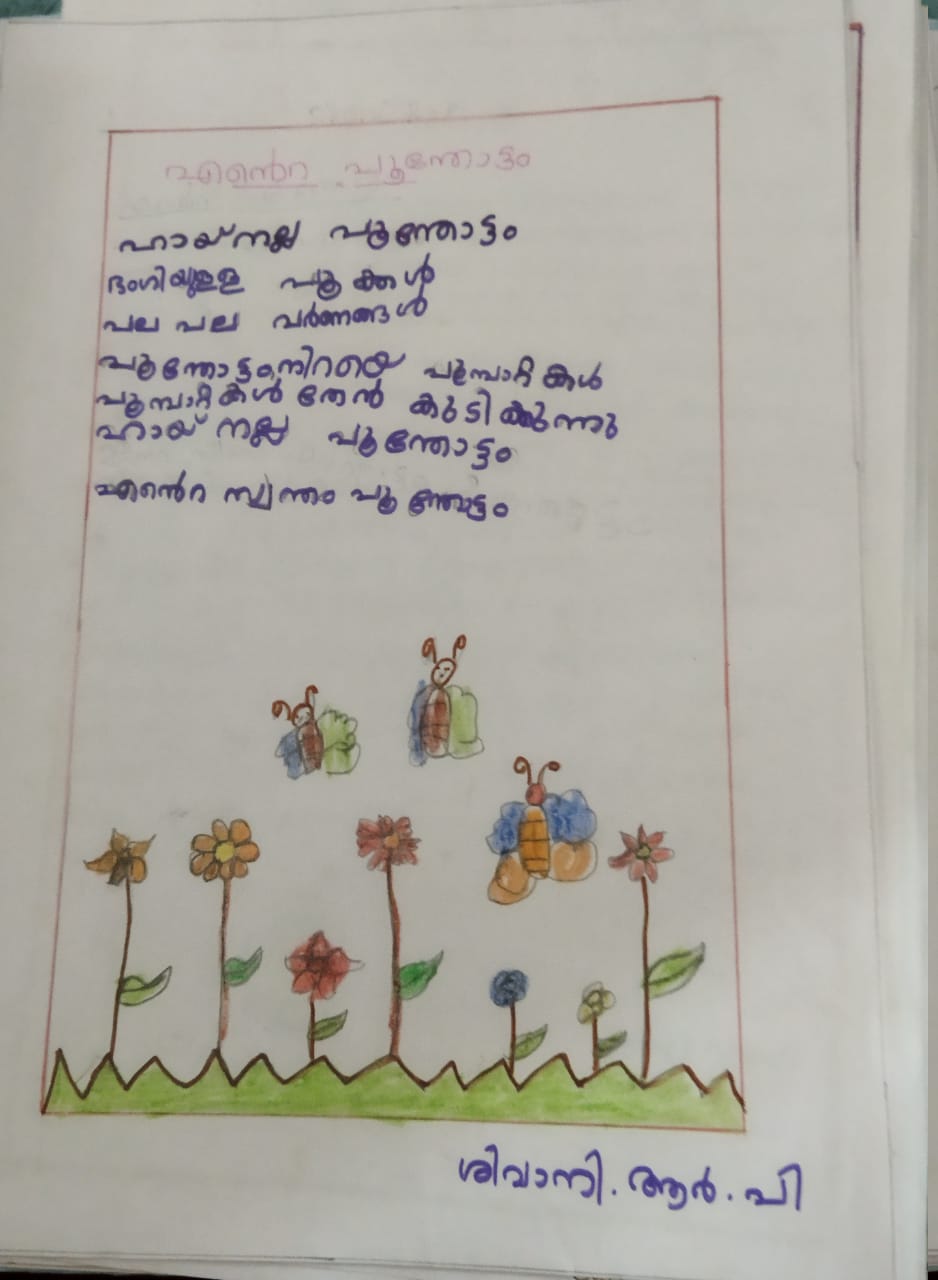 എൻെറ പൂന്തോട്ടം
ഹായ് നല്ല പൂന്തോട്ടം
ഭംഗിയുള്ള പൂക്കൾ
പല പല വർണങ്ങൾ
പൂന്തോട്ടംനിറയെ പൂമ്പാറ്റകൾ
പൂമ്പാറ്റകൾ തേൻ കുടിക്കുന്നു
ഹായ് നല്ല പൂന്തോട്ടം
എൻെറ സ്വന്തം പൂന്തോട്ടം
ശിവാനി. ആർ. പി